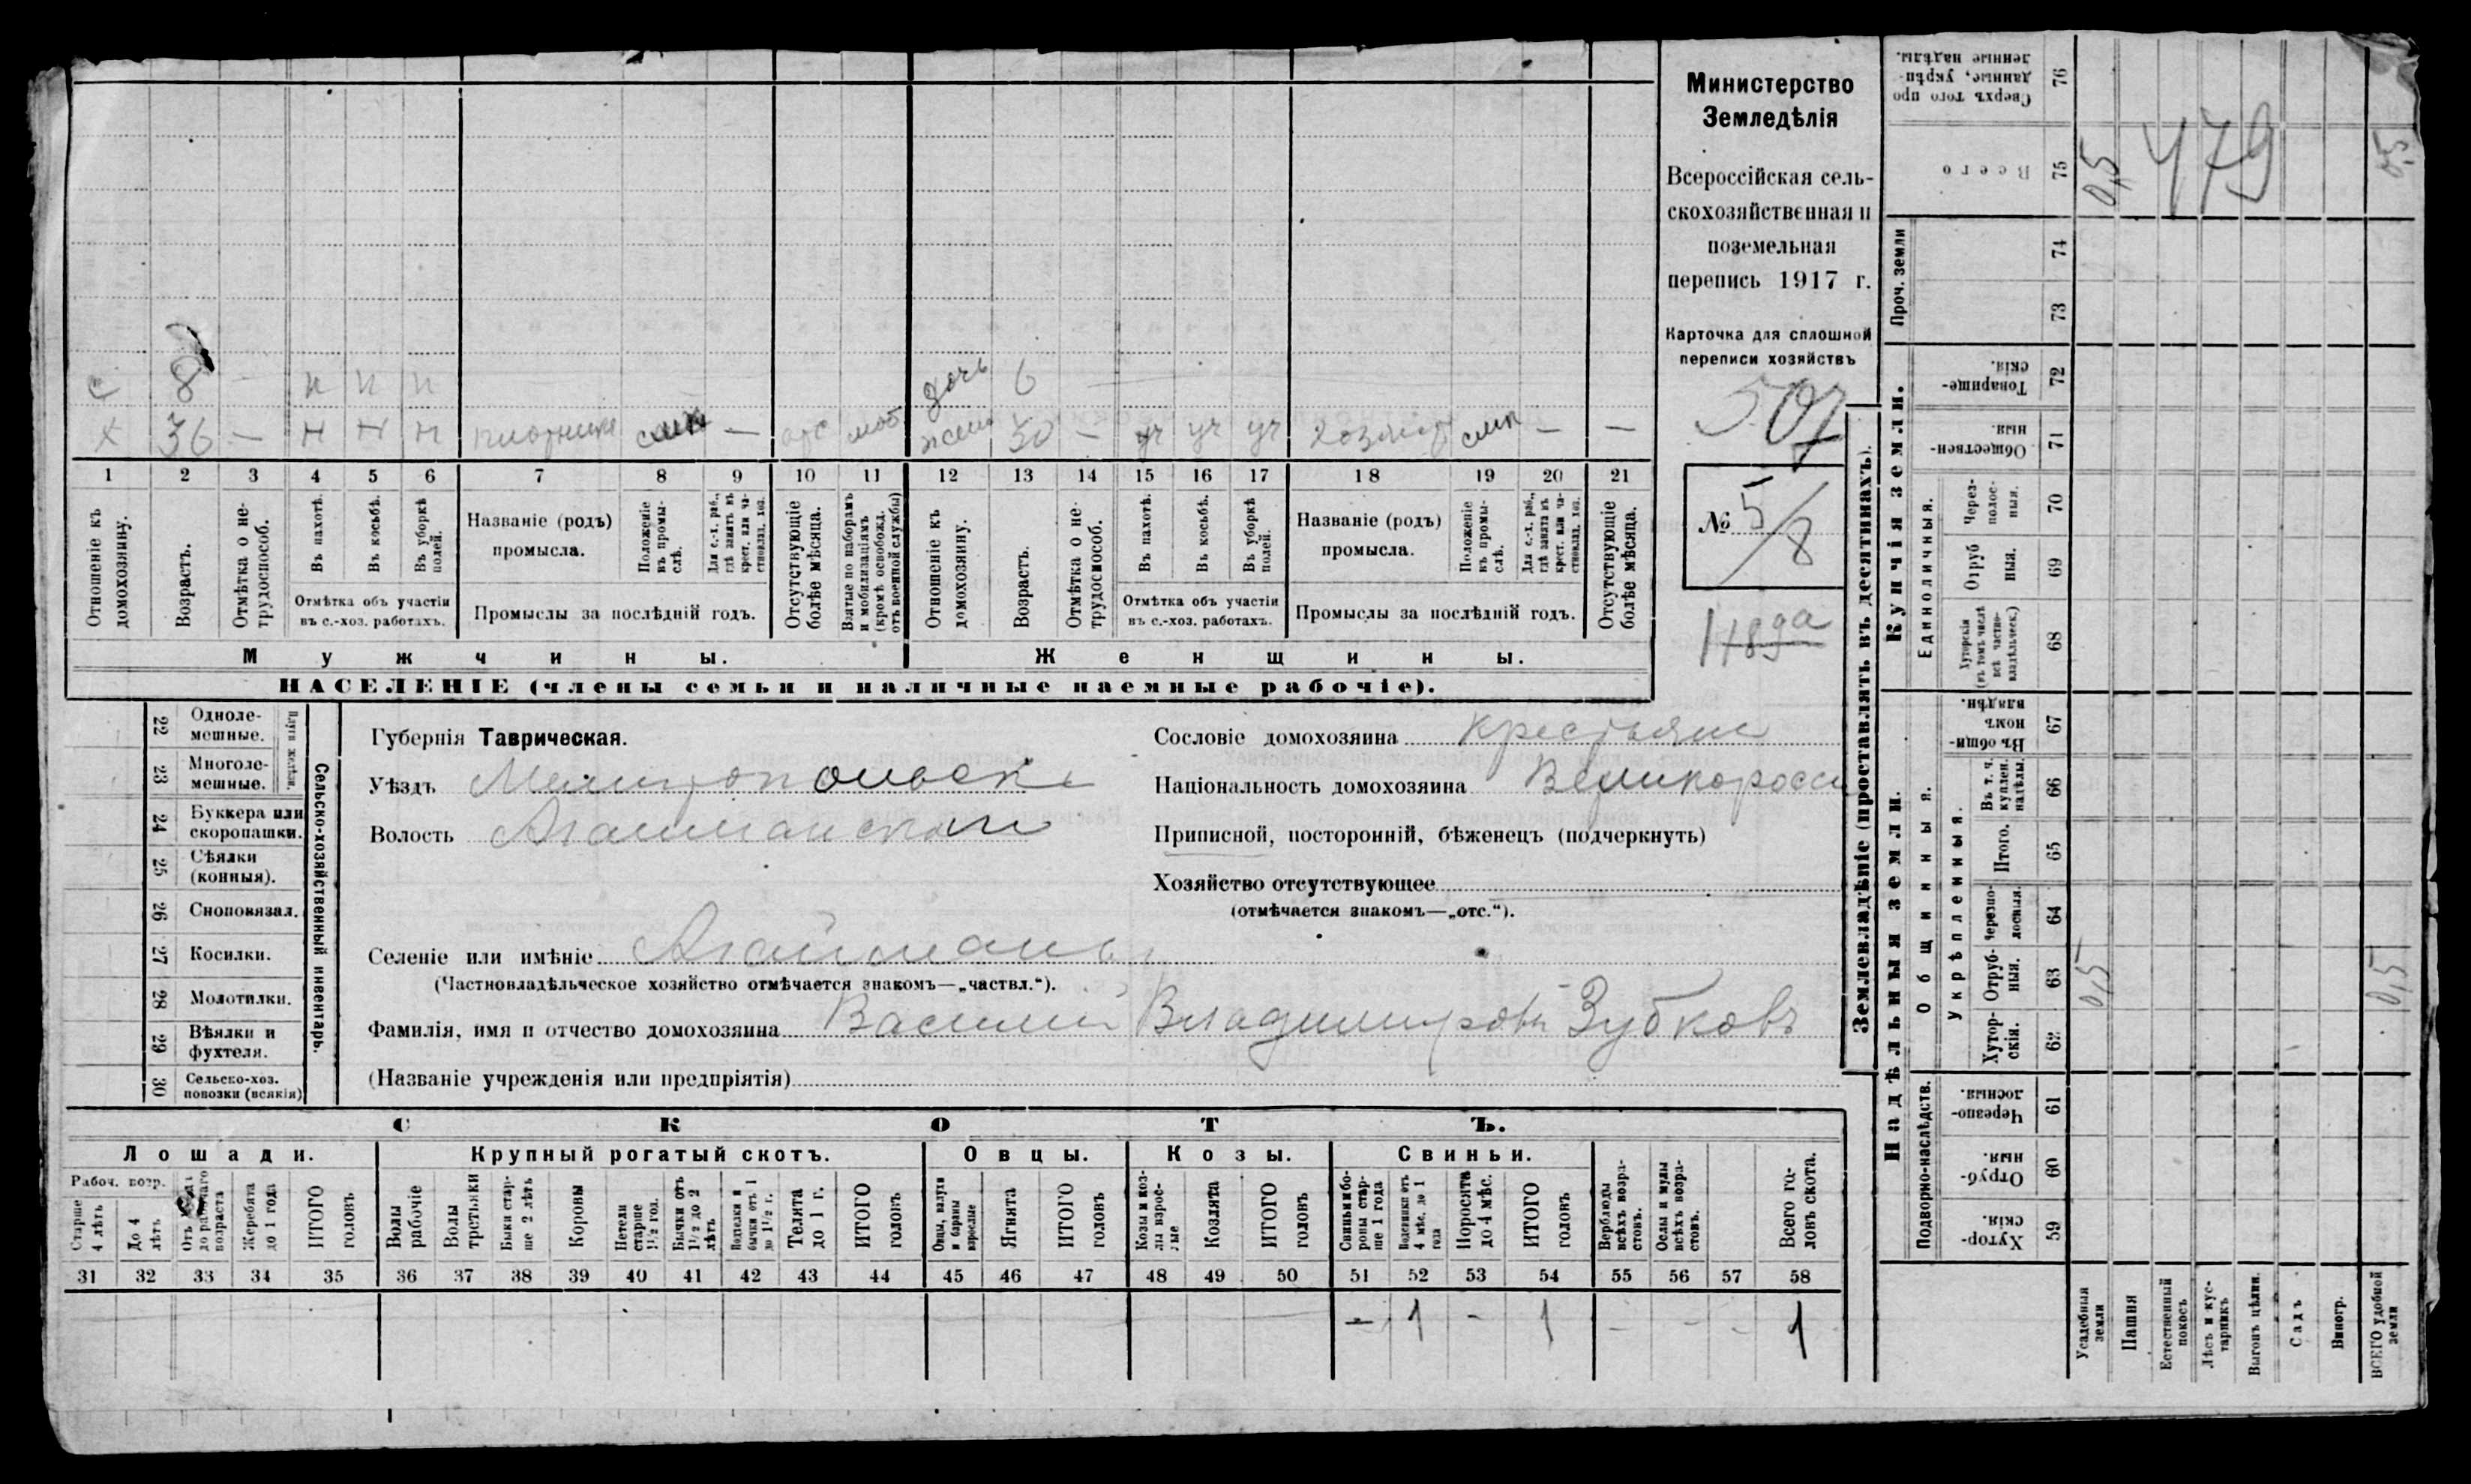 Министерство
Земледѣлія
Всероссійская сель-
скохозяйственная и
поземельная
перепись 1917 г.
Карточка для сплошной
переписи хозяйствъ
507
№ 5/8
с 8 — н н н
дочь 6 —
х 36 — н н н плотник — отс моб
жена 30 — уч уч уч — —
1 2 3 4 5 6 7 8 9 10 11 12 13 14 15 16 17 18 19 20 21
Отношеніе къ домохозяину.
Возрастъ.
Отмѣтка о не-трудоспособ.
Въ пахотѣ.
Въ косьбѣ.
Въ уборкѣ полей.
Отмѣтка объ участіи
въ с.-хоз. работахъ.
Названіе (родъ)
промысла.
Положеніе въ промы-слѣ.
Для с.-х. раб., гдѣ занятъ въ крест. или ча-стновлад. хоз.
Промыслы за послѣдній годъ.
Отсутствующіе болѣе мѣсяца.
Взятые по наборамъ и мобилизаціямъ (кромѣ освобожд. отъ военной службы)
Отношеніе къ домохозяину.
Возрастъ.
Отмѣтка о не-трудоспособ.
Въ пахотѣ.
Въ косьбѣ.
Въ уборкѣ полей.
Отмѣтка объ участіи
въ с.-хоз. работахъ.
Названіе (родъ)
промысла.
Положеніе въ промы-слѣ.
Для с.-х. раб., гдѣ занята въ крест. или ча-стновлад. хоз.
Промыслы за послѣдній годъ.
Отсутствующіе болѣе мѣсяца.
Мужчины.
Женщины.
НАСЕЛЕНІЕ (члены семьи и наличные наемные рабочіе).
Сельско-хозяйственный инвентарь.
Плуги желѣзн.
22 Одноле-
мешные.
23 Многоле-
мешные.
24 Буккера или
скоропашки.
25 Сѣялки
(конныя).
26 Сноповязал.
27 Косилки.
28 Молотилки.
29 Вѣялки и
фухтеля.
30 Сельско-хоз.
повозки (всякія)
Губернія Таврическая.
Уѣздъ Мелитопольск
Волость Агайманская
Селеніе или имѣніе Агайманъ
(Частновладѣльческое хозяйство отмѣчается знакомъ—„частвл.“).
Фамилія, имя и отчество домохозяина Василий Владимиров Зубковъ
(Названіе учрежденія или предпріятія)
Сословіе домохозяина крестьяне
Національность домохозяина Великоросс
Приписной, посторонній, бѣженецъ (подчеркнуть)
Хозяйство отсутствующее
(отмѣчается знакомъ—„отс.“).
СКОТЪ.
Лошади.
Крупный рогатый скотъ.
Овцы.
Козы.
Свиньи.
Рабоч. возр.
Старше 4 лѣтъ
До 4 лѣтъ
Жеребята до 1 года
ИТОГО головъ
Волы рабочіе
Волы третьяки
Быки стар-ше 2 лѣтъ
Коровы
Нетели старше 1½ год.
Бычки отъ 1½ до 2 лѣтъ
Подтелки и бычки отъ 1 до 1½ г.
Телята до 1 г.
ИТОГО головъ
Овцы, валухи и бараны взрослые
Ягнята
ИТОГО головъ
Козы и коз-лы взрос-лые
Козлята
ИТОГО головъ
Свиньи и бо-ровы стар-ше 1 года
Подсвинки отъ 4 мѣс. до 1 года
Поросята до 4 мѣс.
ИТОГО головъ
Верблюды всѣхъ возра-стовъ.
Ослы и мулы всѣхъ возра-стовъ.
Всего го-ловъ скота.
31 32 33 34 35 36 37 38 39 40 41 42 43 44 45 46 47 48 49 50 51 52 53 54 55 56 57 58
— 1 - 1 - - - 1
Землевладѣніе (проставлять въ десятинахъ).
Купчія земли.
Надѣльныя земли.
Проч. земли
Единоличныя.
Общинныя.
Укрѣпленныя.
Подворно-наслѣдств.
Сверхъ того про данные, укрѣп-ленные надѣлы. 76
Всего 75
74
73
Товарище-скія. 72
Обществен-ныя. 71
Через-полос-ныя. 70
Отруб ныя. 69
Хуторскія (въ томъ числѣ всѣ частно-владѣльческ.) 68
Въ общин-номъ владѣн. 67
Въ т. ч. куплен. надѣлы. 66
Итого. 65
Черезпо-лосныя. 64
Отруб-ныя. 63
Хутор-скія. 62
Черезпо-лосныя. 61
Отруб-ныя. 60
Хутор-скія. 59
0,5
479
0,5
0,5
0,5
Усадебныя земли
Пашня
Естественный покосъ
Лѣсъ и кус-тарникъ
Выгонъ цѣлин.
Садъ
Виногр.
ВСЕГО удобной земли